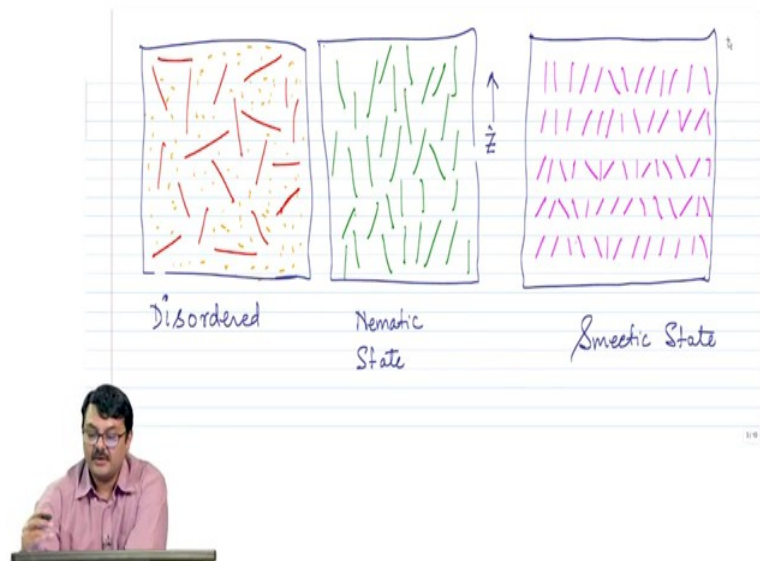 Ẑ
Disordered
Nematic
State
Smectic State